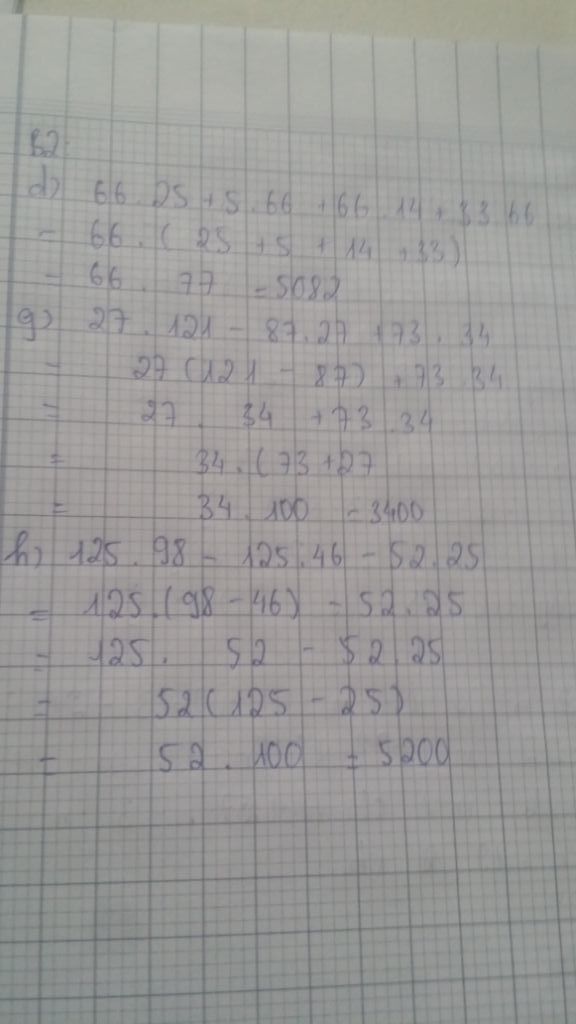 B2
d) 66.25 + 5.66 + 66.14 + 33.66
= 66.(25 + 5 + 14 + 33)
= 66. 77 = 5082
g) 27.121 - 87.27 + 73.34
= 27(121 - 87) + 73.34
= 27. 34 + 73.34
= 34.(73 + 27
= 34.100 = 3400
h) 125.98 - 125.46 - 52.25
= 125.(98 - 46) - 52.25
= 125. 52 - 52.25
= 52(125 - 25)
= 52.100 = 5200